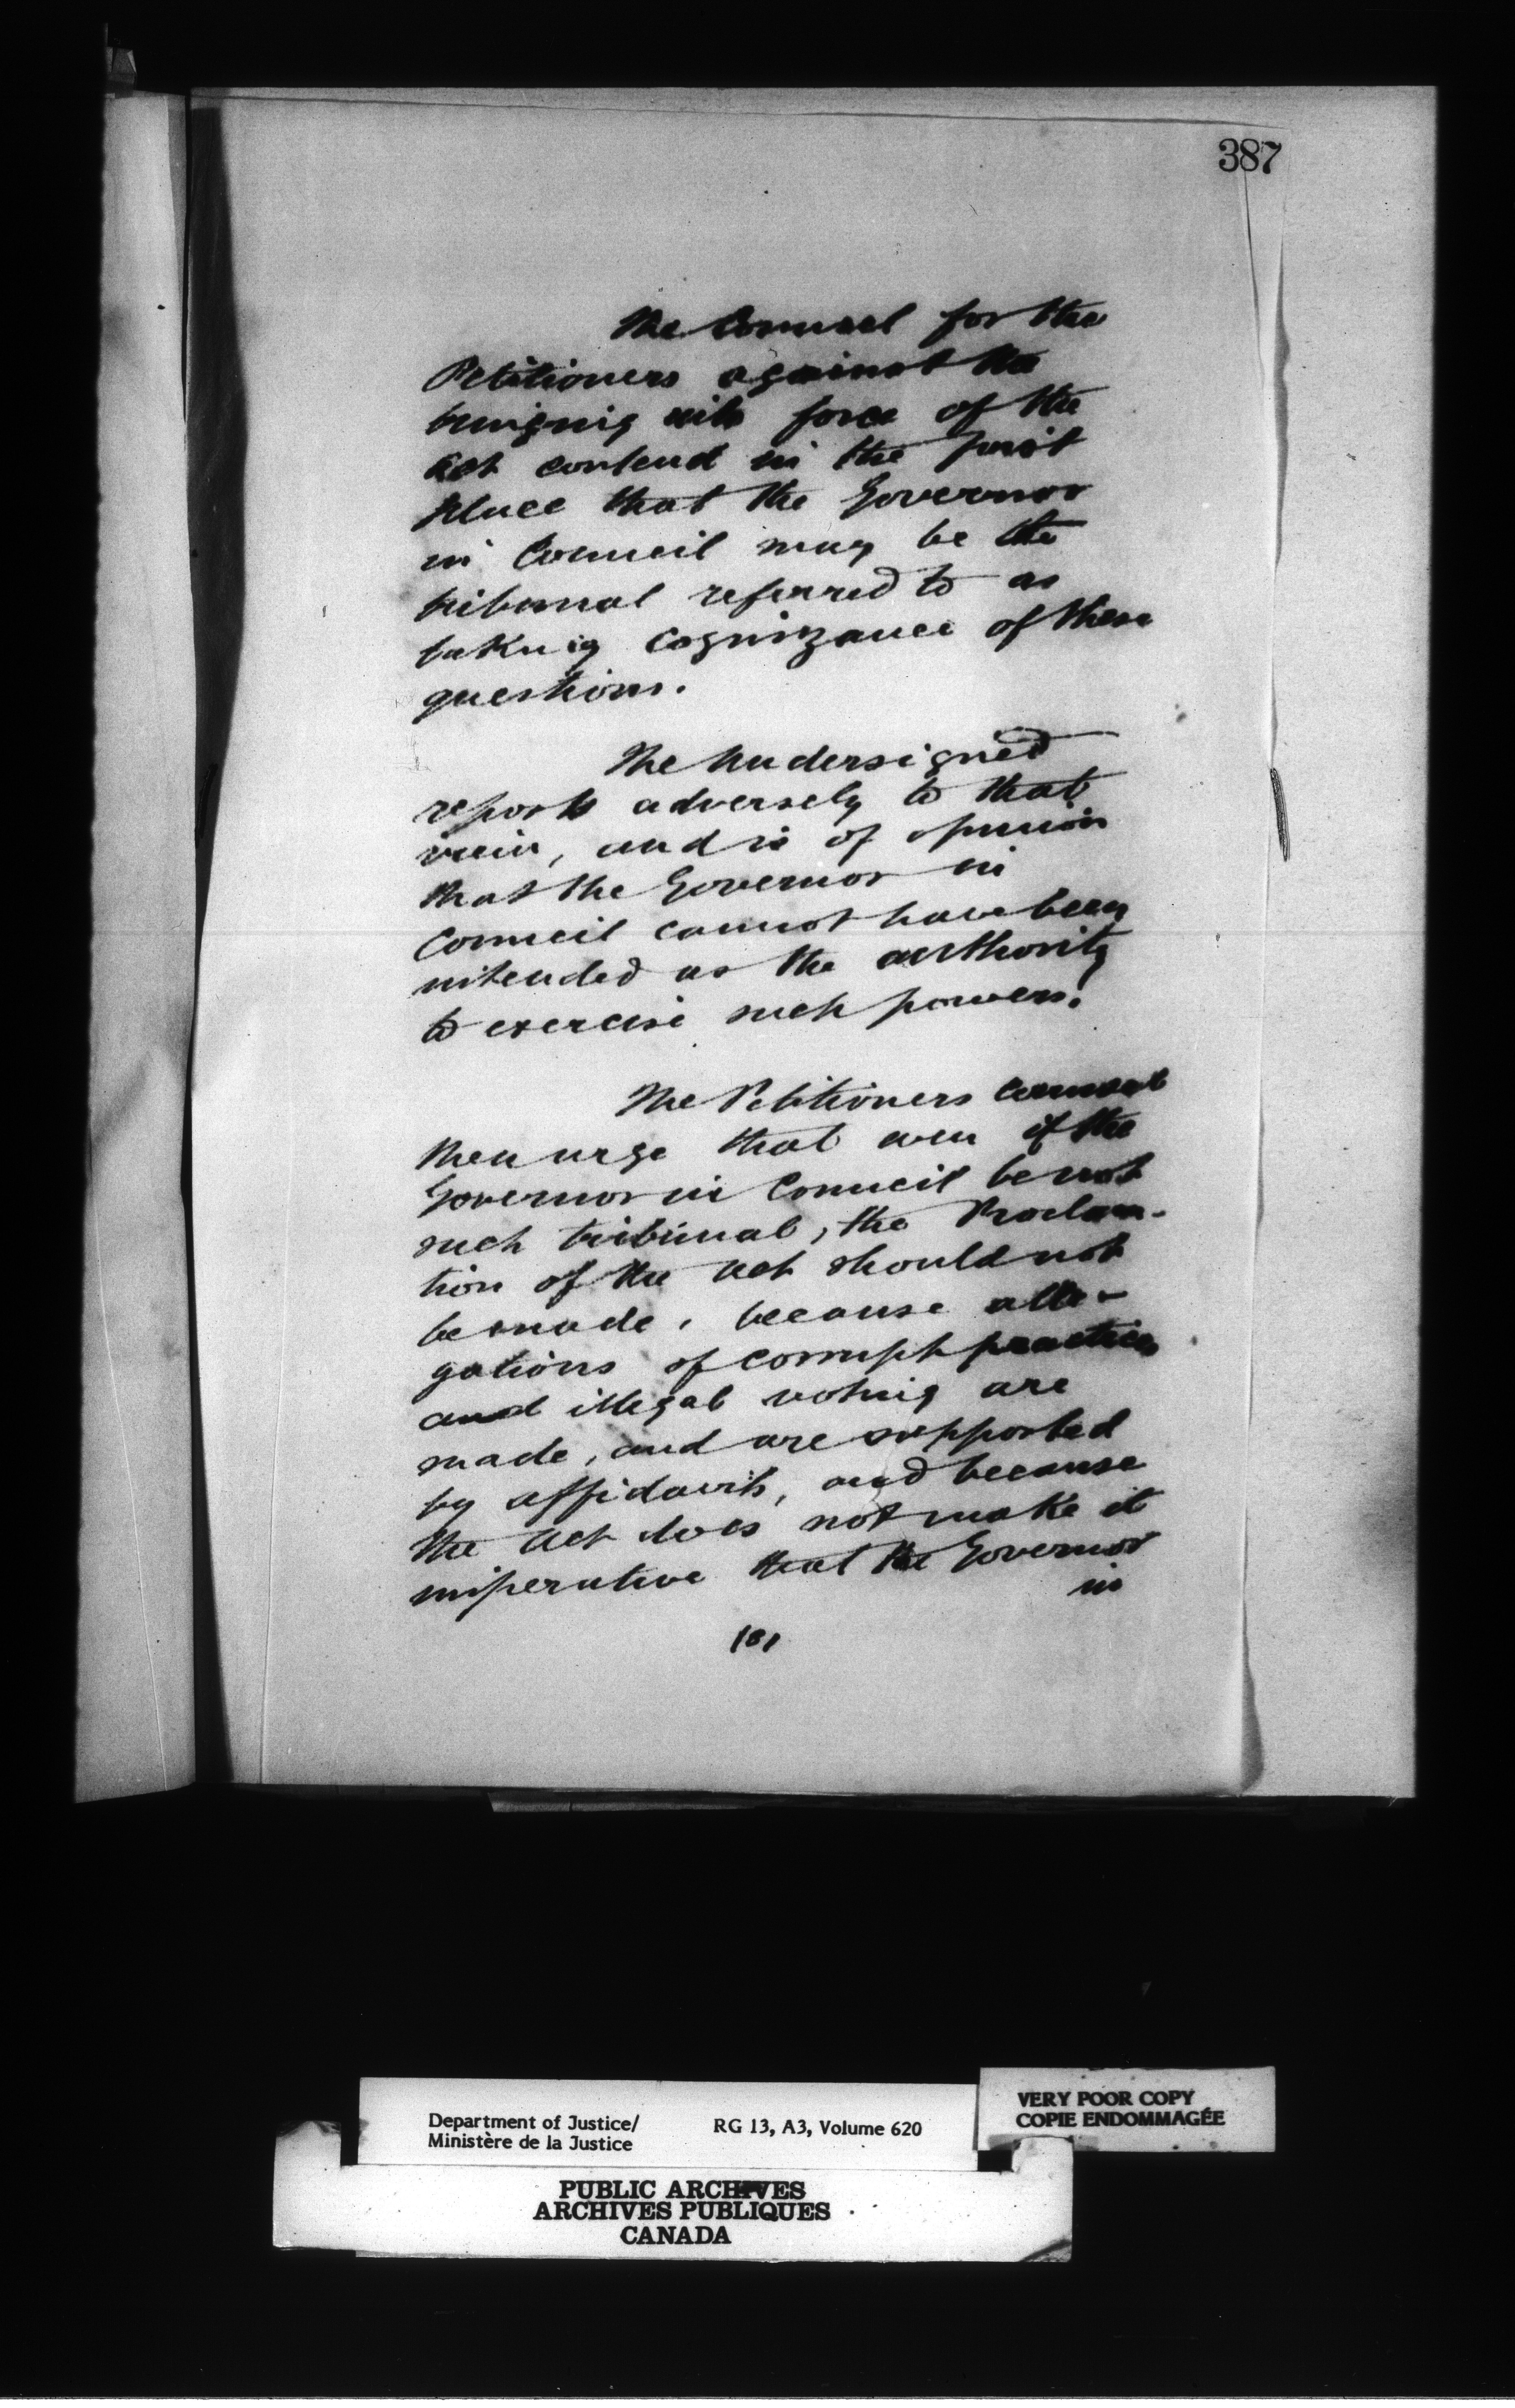 387
The Counsel for the
Petitioners against the
bringing into force of the
Act contend in the first
place that the Governor
in Council may be the
tribunal referred to as
taking cognizance of these
questions.
The Undersigned
reports adversely to that
view, and is of opinion
that the Governor in
Council cannot have been
intended as the authority
to exercise such powers.
The Petitioners Counsel
then urge that even if the
Governor in Council be not
such tribunal, the Proclam-
tion of the Act should not
be made, because alle-
gations of corrupt practices
and illegal voting are
made, and are supported
by affidavits, and because
the Act does not make it
imperative that the Governor
in
181
Department of Justice/
Ministère de la Justice
RG 13, A3, Volume 620
VERY POOR COPY
COPIE ENDOMMAGÉE
PUBLIC ARCHIVES
ARCHIVES PUBLIQUES
CANADA